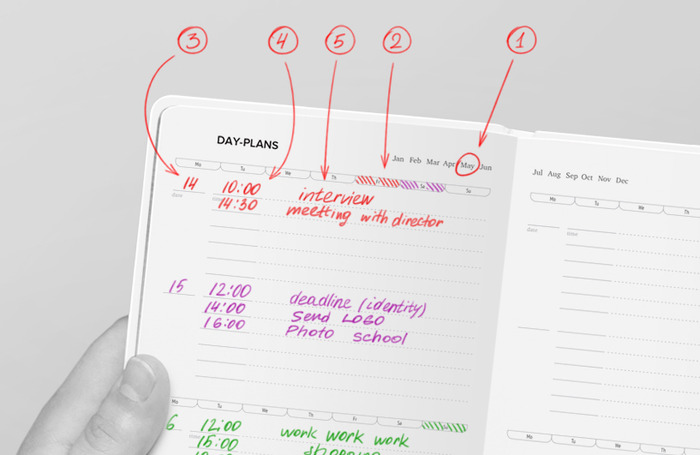 3 4 5 2 1
DAY-PLANS
Jan Feb Mar Apr May Jun
Mo Tu We Th Fr Sa Su
14 10:00 interview
Date 14:30 meetting with director
15 12:00 deadline (identity)
14:00 Send LOGO
16:00 Photo school
Mo Tu We Th Fr Sa
6 12:00 work work work
15:00 shopping
Jul Aug Sep Oct Nov Dec
Mo Tu We Th
Date time
Mo Tu We Th